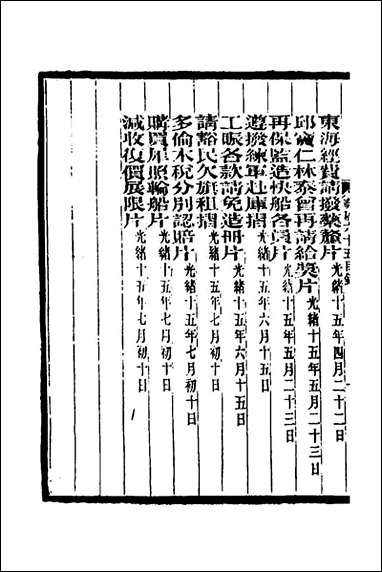 東海經費請撥藥釐片光緒十五年四月二十二日
邱寶仁林泰曾再請給奬片光緒十五年五月二十三日
再保監造快船各員片光緒十五年五月二十三日
遵撥練軍赴庫摺光緒十五年六月十五日
工賑各款請免造冊片光緒十五年六月十五日
請豁民欠旗租摺光緒十五年七月初十日
多倫木稅分別認賠片光緒十五年七月初十日
購買犀照輪船片光緒十五年七月初十日
減收復價展限片光緒十五年七月初十日